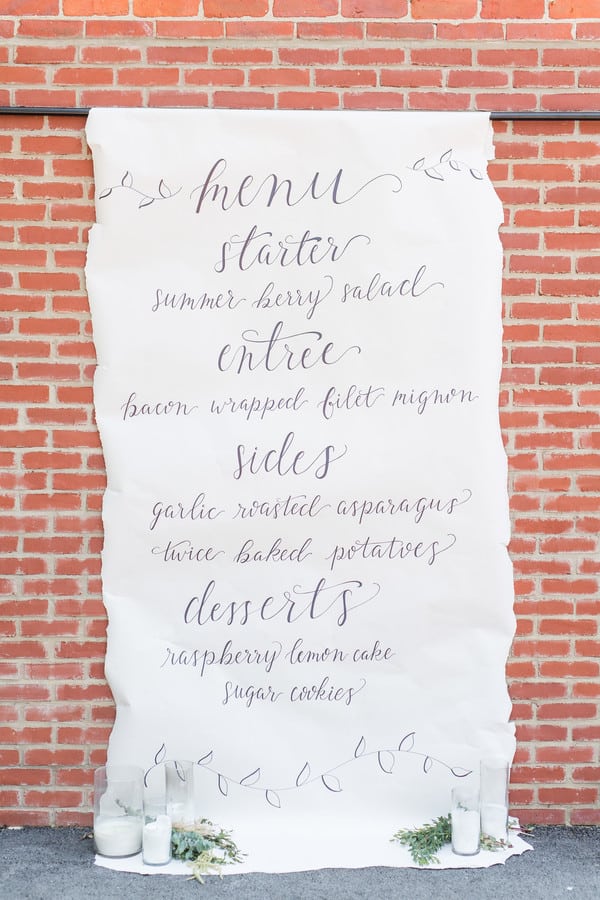 menu
starter
summer berry salad
entree
bacon wrapped filet mignon
sides
garlic roasted asparagus
twice baked potatoes
desserts
raspberry lemon cake
sugar cookies